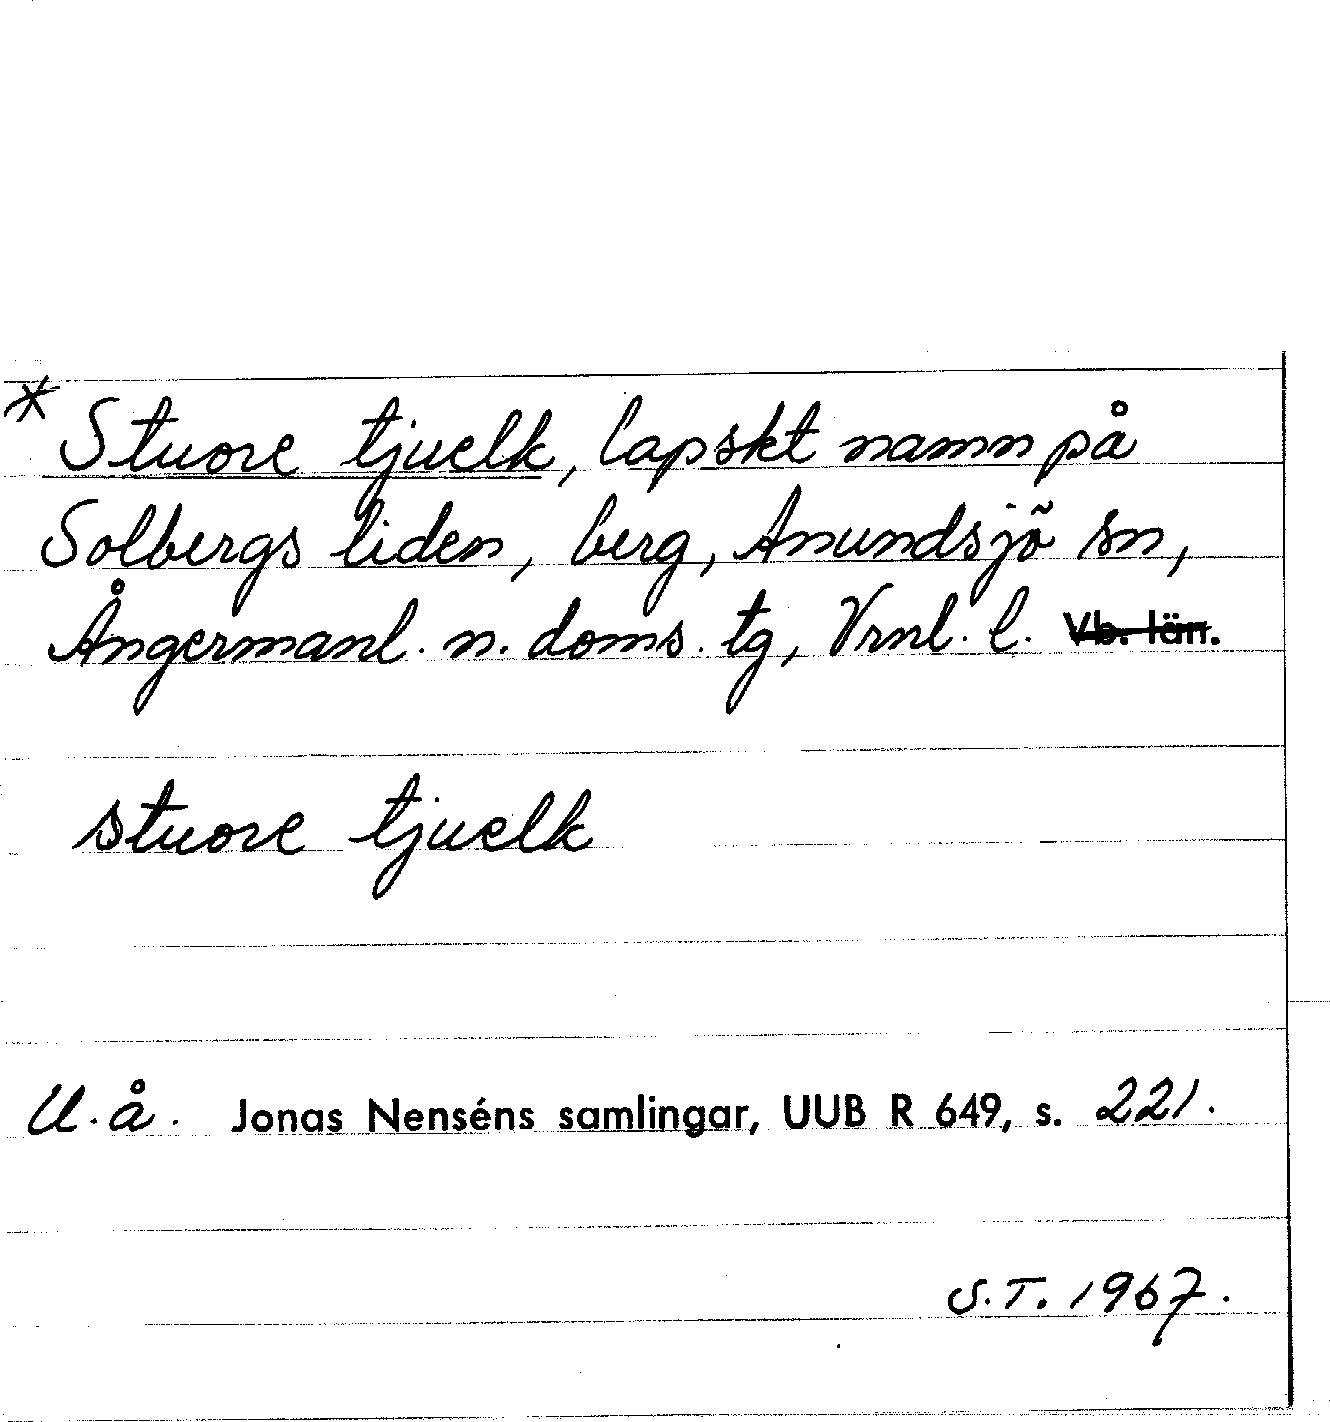 * Stuore tjuelk, lapskt namn på
Solbergs liden, berg, Anundsjö sn,
Ångermanl. n. doms. tg, Vrnl. l. Vb. län.
stuore tjuelk
U. å. Jonas Nenséns samlingar, UUB R 649, s. 221.
S.T. 1967.